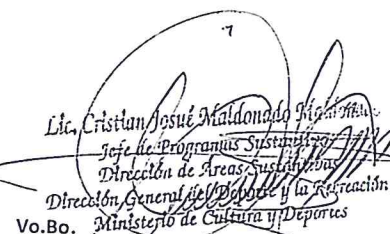 Lic. Cristian Josué Maldonado
Jefe de Programas Sustantivos
Dirección de Areas Sustantivas
Dirección General del Deporte y la Recreación
Vo.Bo. Ministerio de Cultura y Deportes